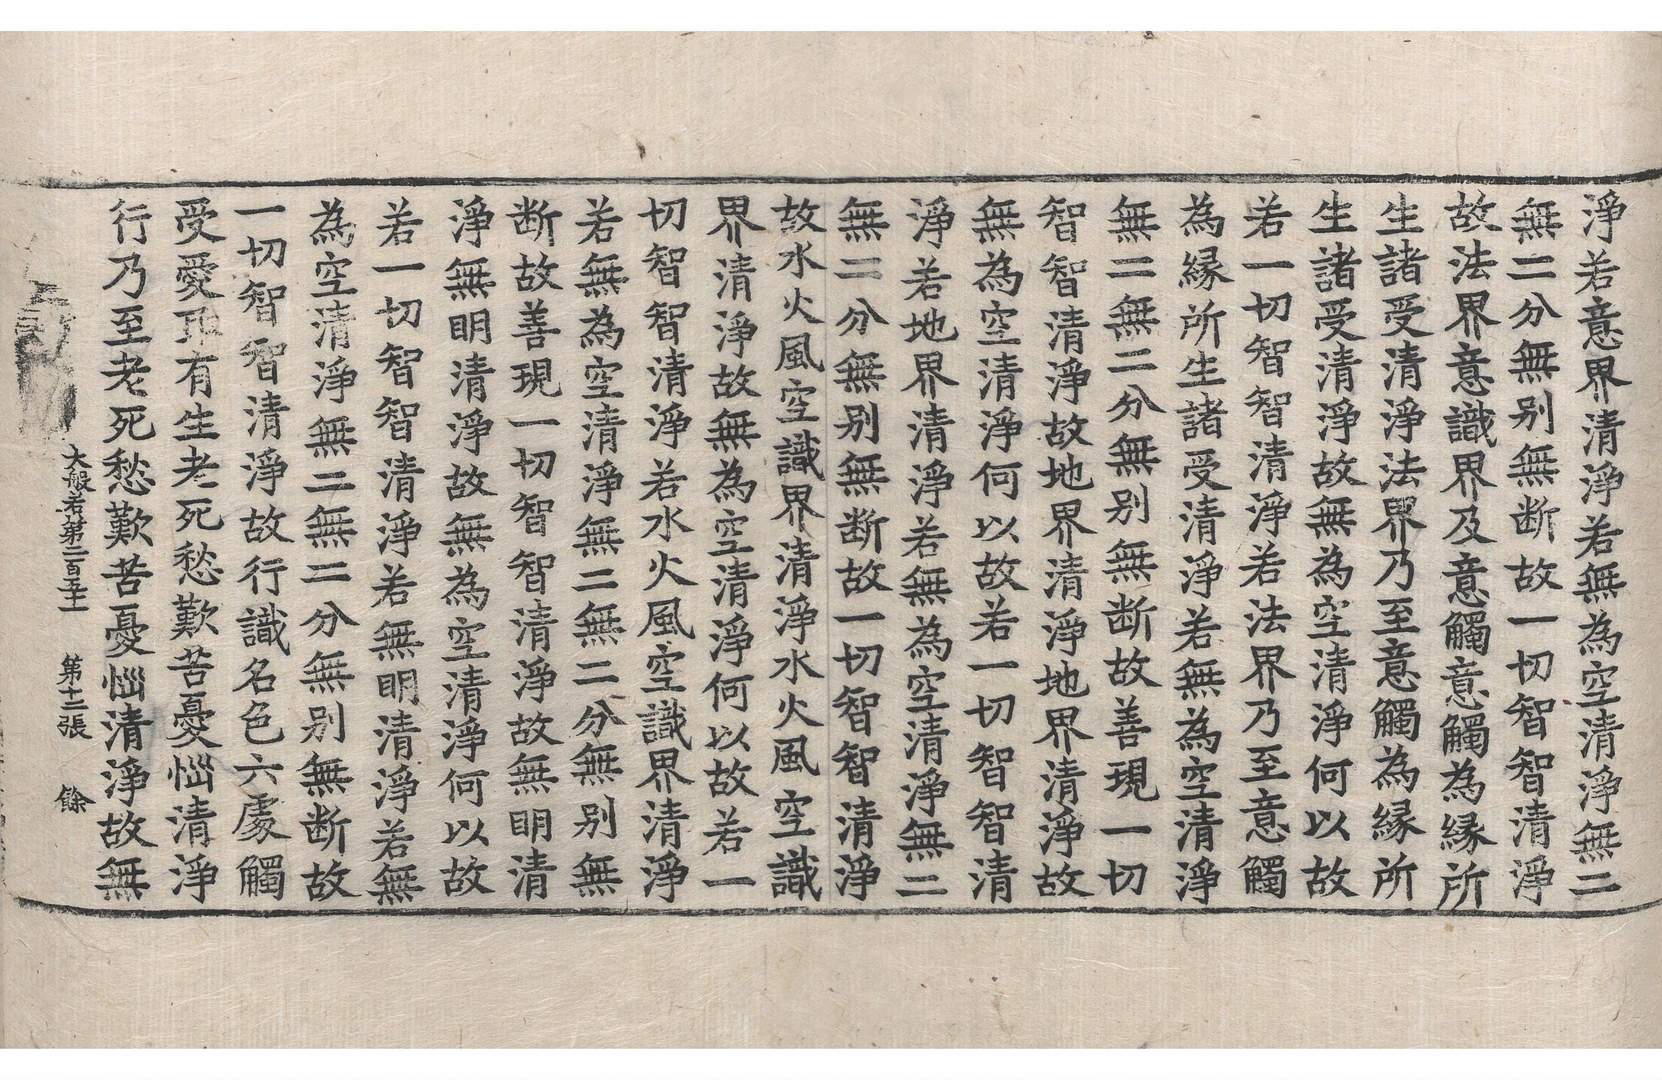 淨若意界清淨若無為空清淨無二
無二分無别無断故一切智智清淨
故法界意識界及意觸意觸為縁所
生諸受清淨法界乃至意觸為縁所
生諸受清淨故無為空清淨何以故
若一切智智清淨若法界乃至意觸
為縁所生諸受清淨若無為空清淨
無二無二分無别無断故善現一切
智智清淨故地界清淨地界清淨故
無為空清淨何以故若一切智智清
淨若地界清淨若無為空清淨無二
無二分無别無断故一切智智清淨
故水火風空識界清淨水火風空識
界清淨故無為空清淨何以故若一
切智智清淨若水火風空識界清淨
若無為空清淨無二無二分無别無
断故善現一切智智清淨故無眀清
淨無眀清淨故無為空清淨何以故
若一切智智清淨若無眀清淨若無
為空清淨無二無二分無别無断故
一切智智清淨故行識名色六處觸
受愛取有生老死愁歎苦憂惱清淨
行乃至老死愁歎苦憂惱清淨故無
大般若第二百五十一 第十二張 餘